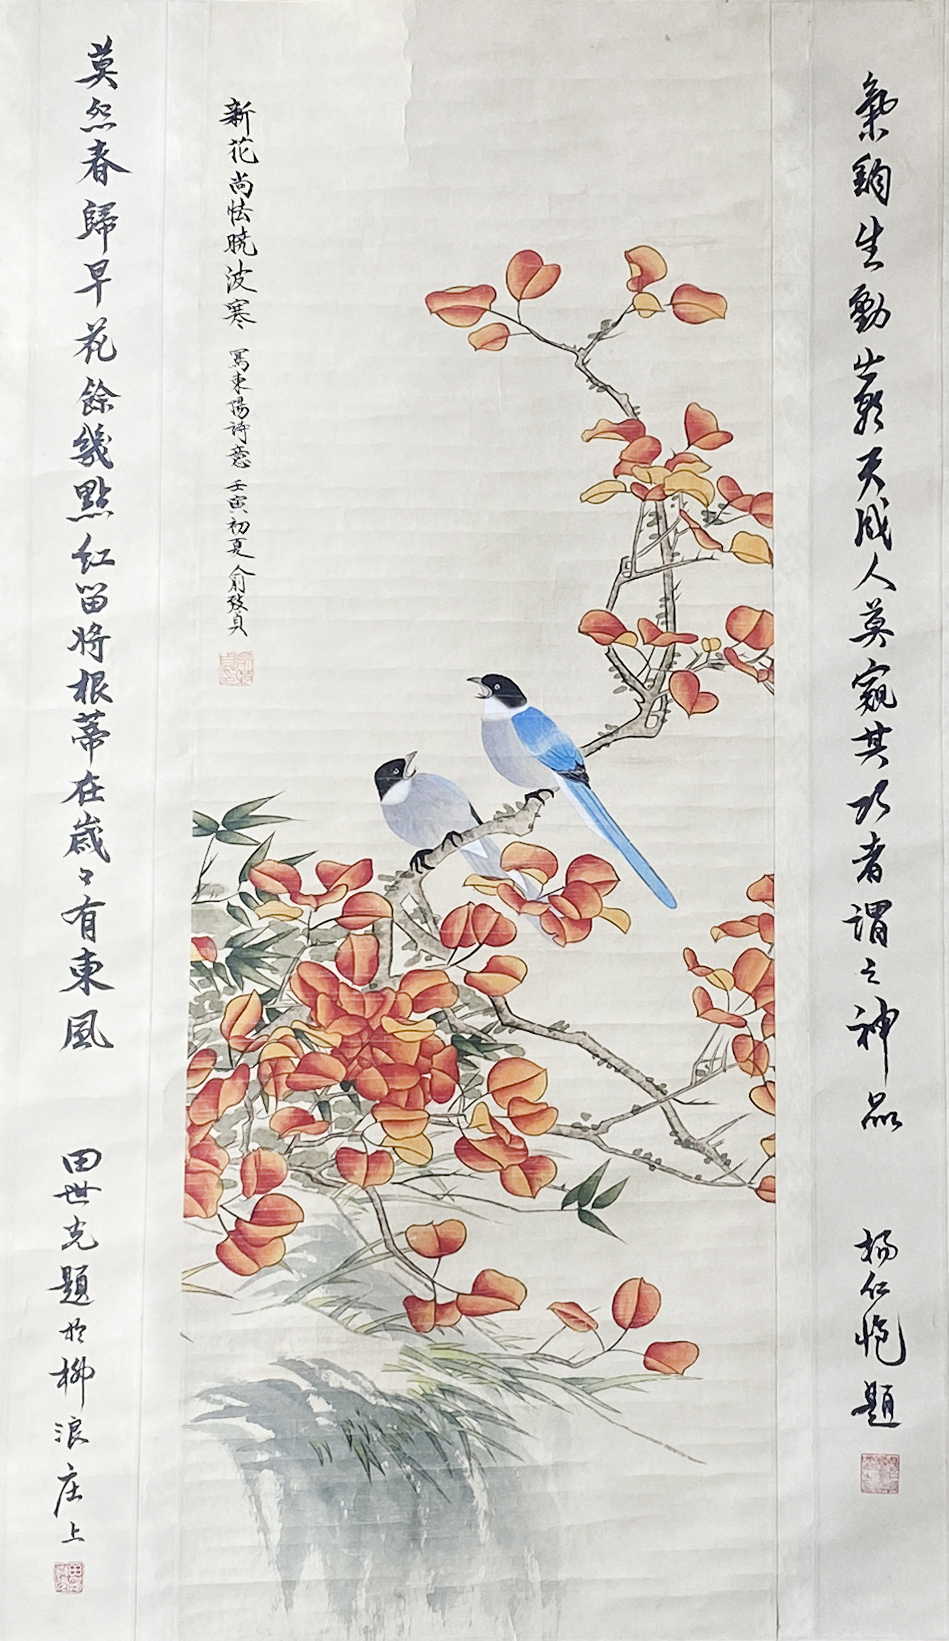 氣韵生動出於天成人莫窺其巧者謂之神品
楊仁恺題
新花尚怯曉波寒 寫東陽詩意 壬寅初夏 俞致貞
莫怨春歸早花餘幾點紅留將根蒂在歲々有東風
田世光題於柳浪庄上